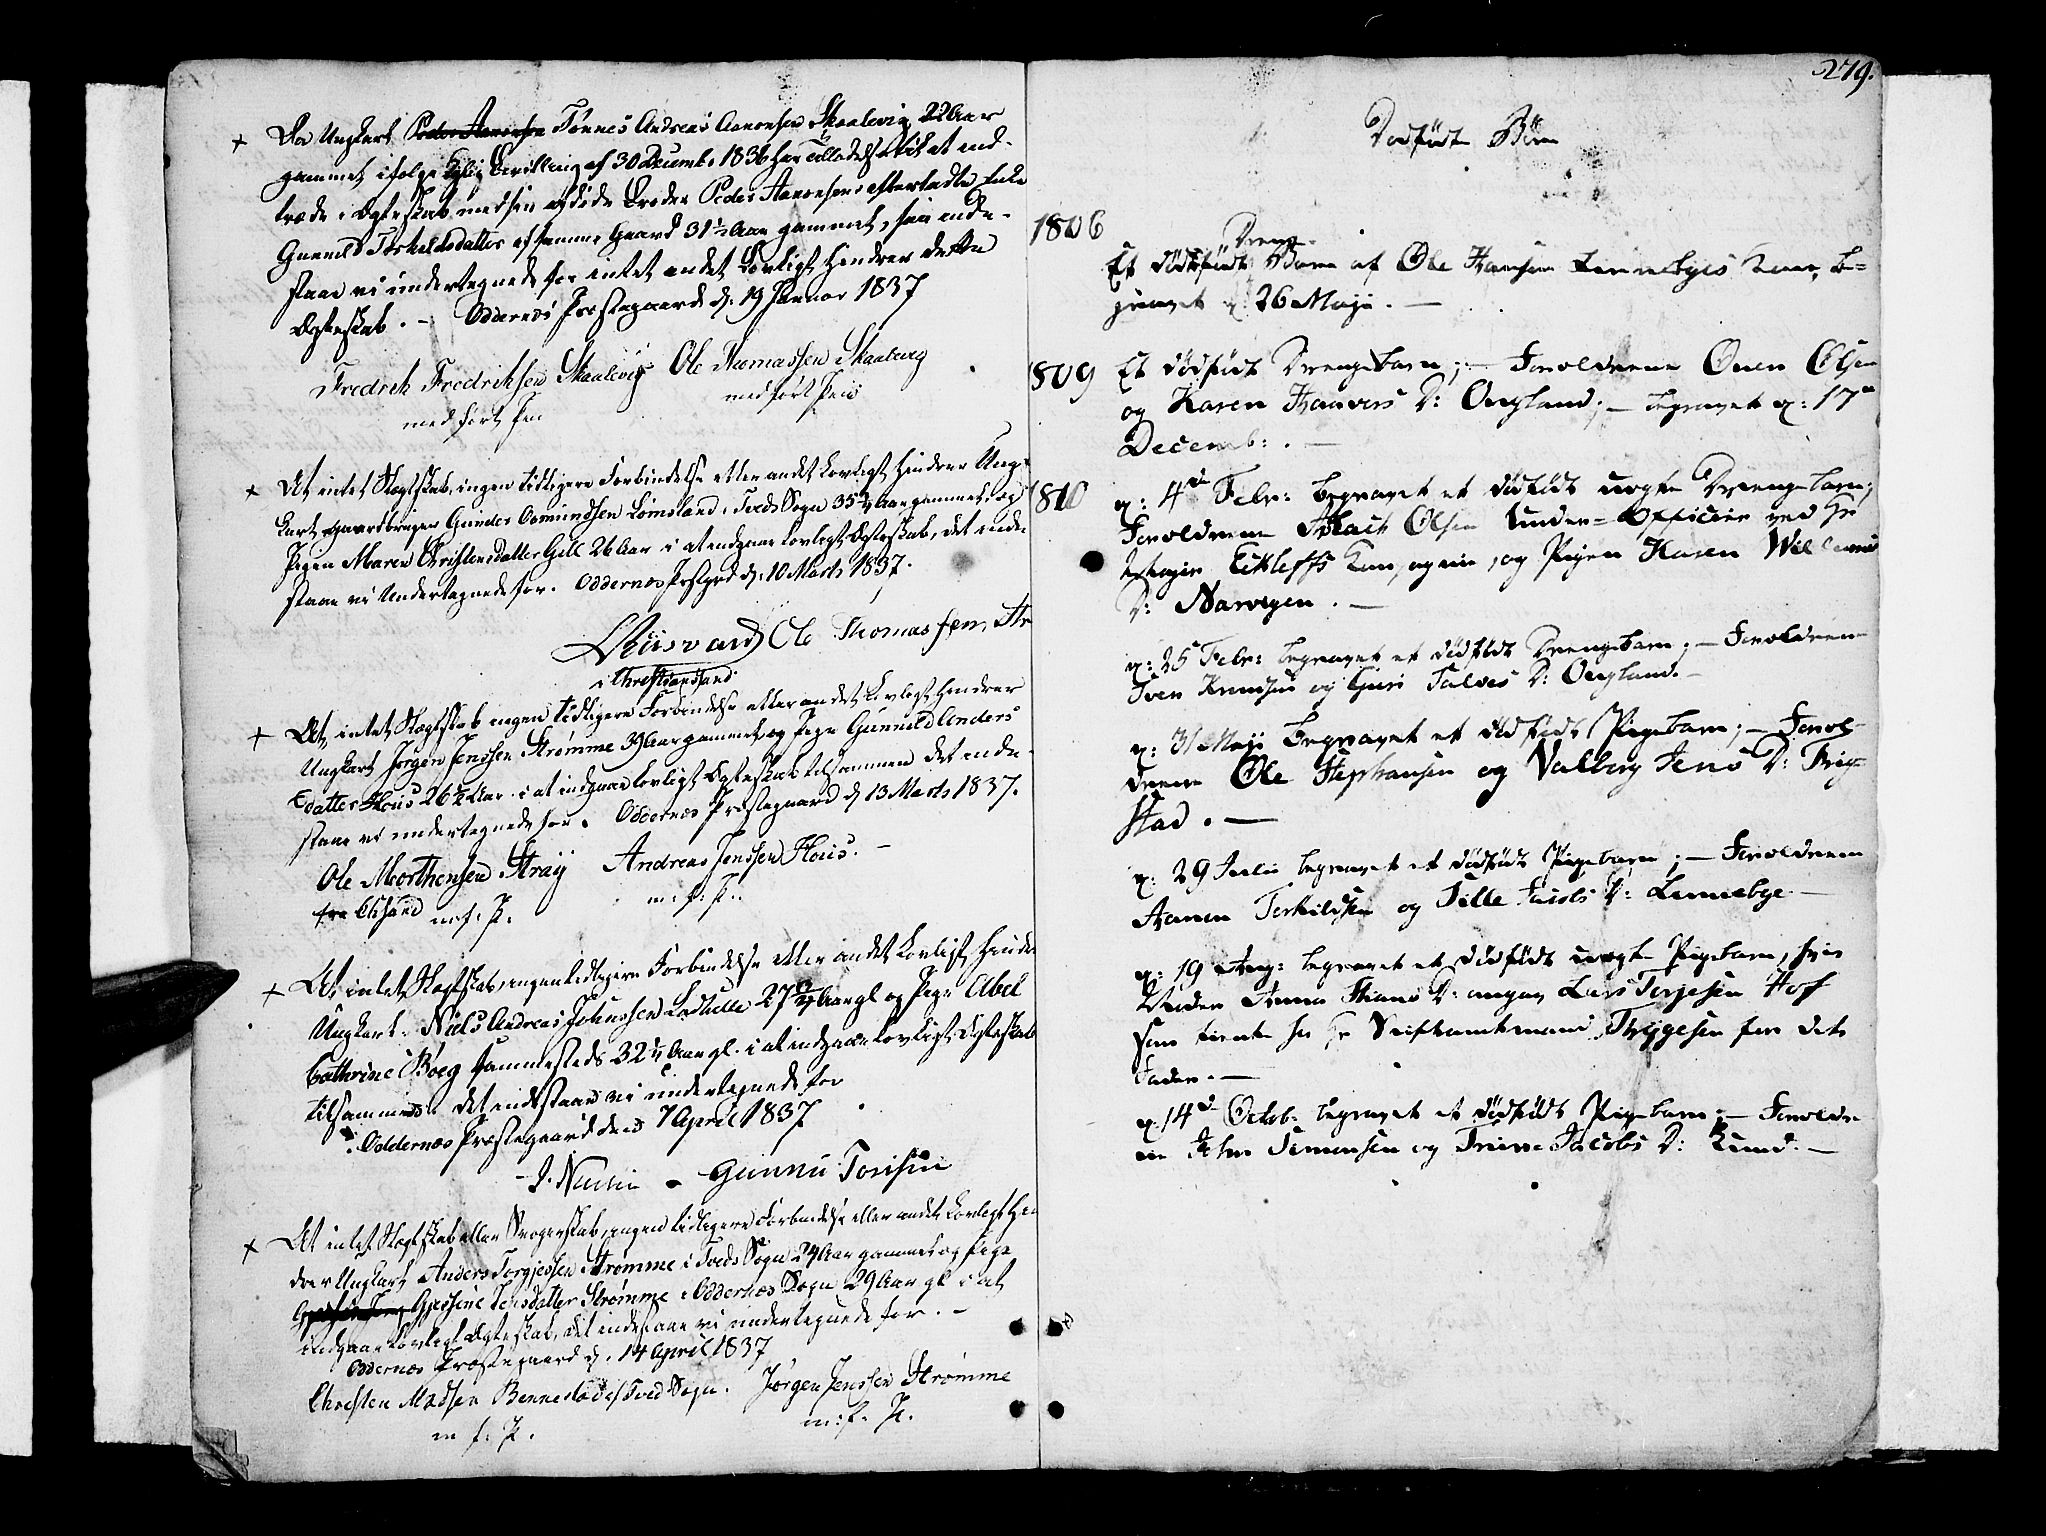 Da Ungkarl Peder Aanonsen Tønnes Andreas Aanonsen Skaalevig 22 Aar
gammel, ifølge Kglig Bevilling af 30 Decemb. 1836 har Tilladelse til at ind-
træde i Ægteskab med sin afdøde Broder Peder Aanonsens efterladte Enke
Gunnild Terkelsdatter af samme Gaard 31½ Aar gammel, saa inde-
staae vi undertegnede for intet andet Lovligt hindrer dette
Ægteskab. - Oddernes Præstegaard d: 19 Januar 1837
Fredrik Fredriksen Skaalevig Ole Thomassen Skaalevig
med ført Pen med ført Pen
At intet Slægtskab, ingen tidligere Forbindelse eller andet Lovligt hindrer Ung-
karl, Gaardbruger Gunder Osmundsen Lomsland i Tveds Sogn 35¾ Aar gammel og
Pigen Maren Christensdatter Gill 26 Aar i at indgaae lovligt Ægteskab, det inde-
staae vi Undertegnede for. Oddernes Præstgrd d: 10 Marts 1837.
Ole Thomassen, Str
i Christiansand
At intet Slægtskab ingen tidligere Forbindelse eller andet Lovligt hindrer
Ungkarl Jørgen Jenssen Strømme 39 Aar gammel og Pige Gunnild Anders
datter Hous 26½ Aar i at indgaae lovligt Ægteskab tilsammen det inde-
staae vi undertegnede for. Oddernes Præstegaard d 13 Marts 1837.
Ole Morthensen Straÿ Andreas Jenssen Hous. -
fra Chsand m: f: P. m: f: P.
At intet Slægtskab, ingen tidligere Forbindelse eller andet Lovligt hinder
Ungkarl Niels Andreas Johnssen Lodtille 27 Aar gl og Pige Abel
Cathrine Boeg sammesteds 32 Aar gl. i at indgaae lovligt Ægteskab
tilsammen. Det indestaae vi undertegnede for
Oddernes Præstegaard den 7 April 1837
Gunnu Torisen
At intet Slægtskab eller Svogerskab, ingen tidligere Forbindelse eller andet Lovligt hin
drer Ungkarl Anders Torgjessen Strømme i Tveds Sogn 24 Aar gammel og Pige
Gjessine Jensdatter Strømme i Oddernes Sogn 29 Aar gl i at
indgaae Lovligt Ægteskab, det indestaae vi undertegnede for. -
Oddernes Præstegaard d. 14 April 1837
Christen Madsen Bennestad af Tved Sogn. Jørgen Jenssen Strømme
m f: P. m: f. P.
279.
Dødfødte Børn
1806
Drenge
Et dødfødt Barn af Ole Hansen Linnebyes Kone, be-
gravet d: 26 Maji. -
1809 Et dødfødt Drengebarn; - Forældrene Onen Olsen
og Karen Haavers D: Ongland; - begravet d: 17de
Decemb: . -
1810 d: 4de Febr: begravet et dødfødt uægte Drengebarn;
Forældrene Aslach Olsen Under-Officier ved Hr
Eckleffs Kompagnie, og Pigen Karen Willums
D: Narvigen. -
d: 25 Febr: begravet et dødfødt Drengebarn; - Forældrene
Sven Knudsen og Guri Talves D: Ongland. -
d: 31 Maji begravet et dødfødt Pigebarn; - Foræl-
drene Ole Stephansen og Valborg Jens D: Trÿg-
stad. -
d: 29 Julii begravet et dødfødt Pigebarn; - Forældrene
Aanen Terkildsen og Sille Jacobs D: Linnebye. -
d: 19 Aug: begravet et dødfødt uægte Pigebarn, hvis
Moder Anna Stians D: angav Lars Terjesen Hof
som tiente hos Hr Stiftamtmand Thygesen for dets
Fader. -
d: 14de Octob: begravet et dødfødt Pigebarn; - Forældre
ne John Simonsen og Trine Jacobs D: Lund. -